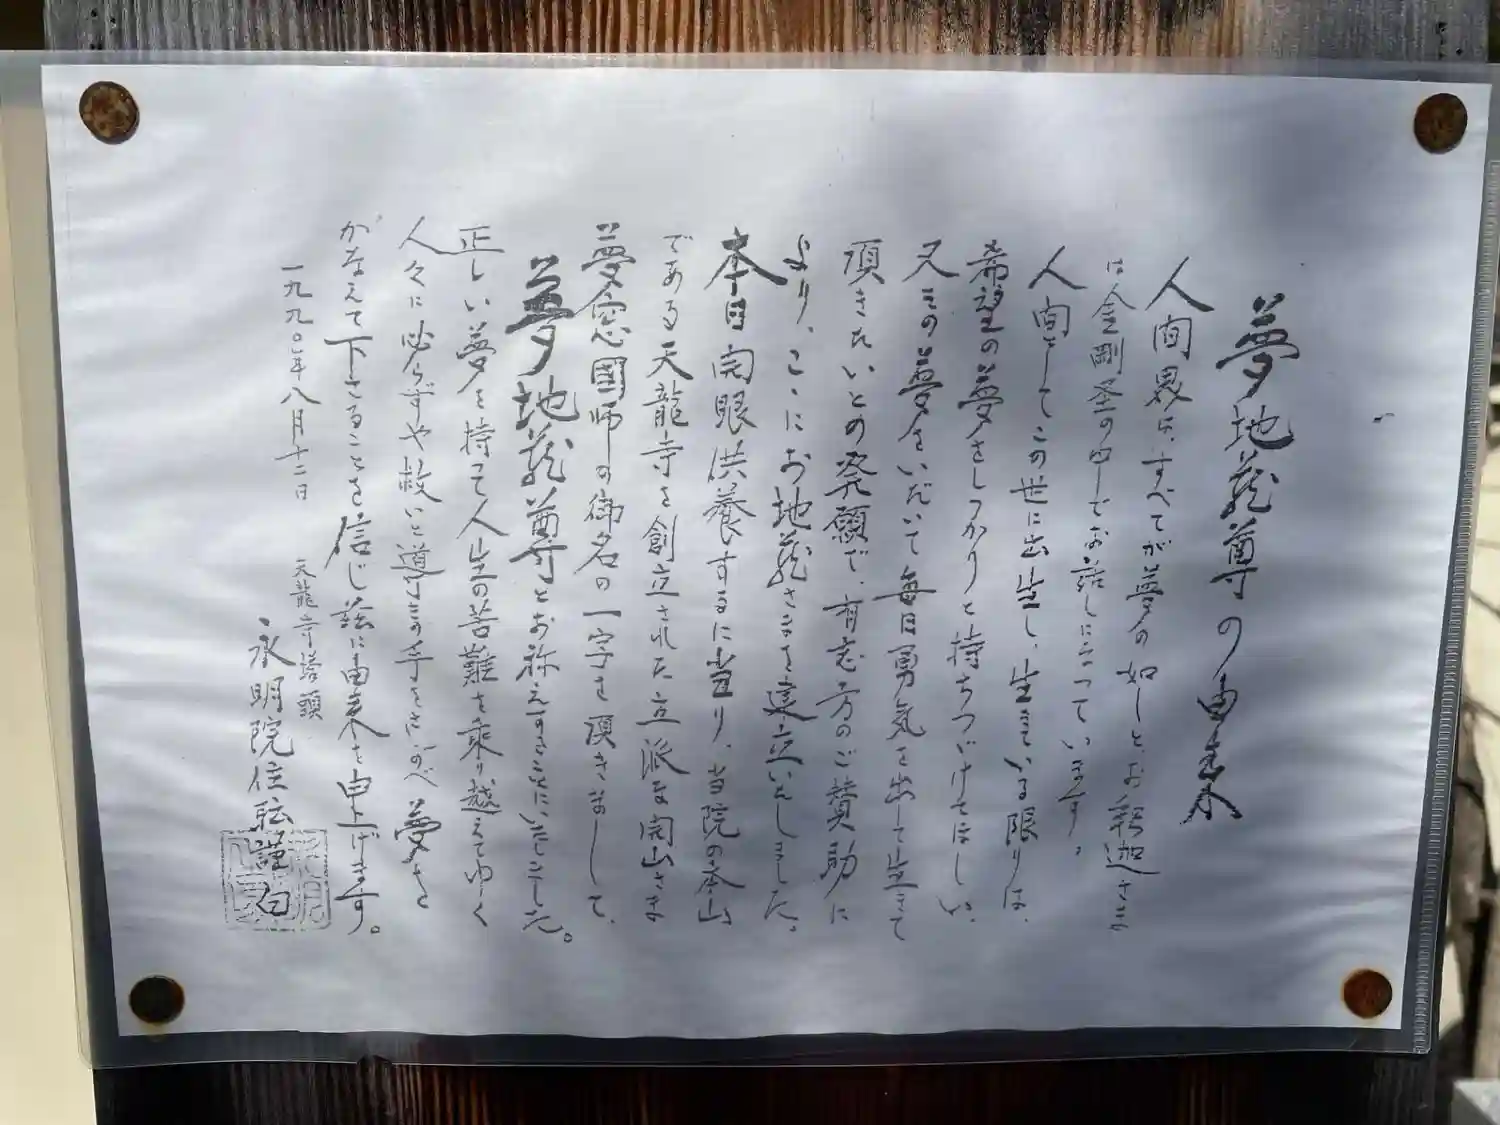 夢地蔵尊の由来
人間界は、すべてが夢の如しと、お釈迦さまは
は金剛経の中でお話しになっています。
人間としてこの世に出生し、生きている限りは、
希望の夢をしっかりと持ちつづけてほしい、
又その夢をいだいて毎日勇気を出して生きて
頂きたいとの発願で、有志方のご賛助に
より、ここにお地蔵さまを建立いたしました。
本日開眼供養するに当り、当院の本山
である天龍寺を創立された立派な開山さま
夢窓國師の御名の一字を頂きまして、
夢地蔵尊とお称えすることにいたしました。
正しい夢を持って人生の苦難を乗り越えてゆく
人々に必らずや救いと導きの手をさしのべ夢を
かなえて下さることを信じ茲に由来を申上げます。
一九九〇年八月十二日
天龍寺塔頭
永明院住職謹白